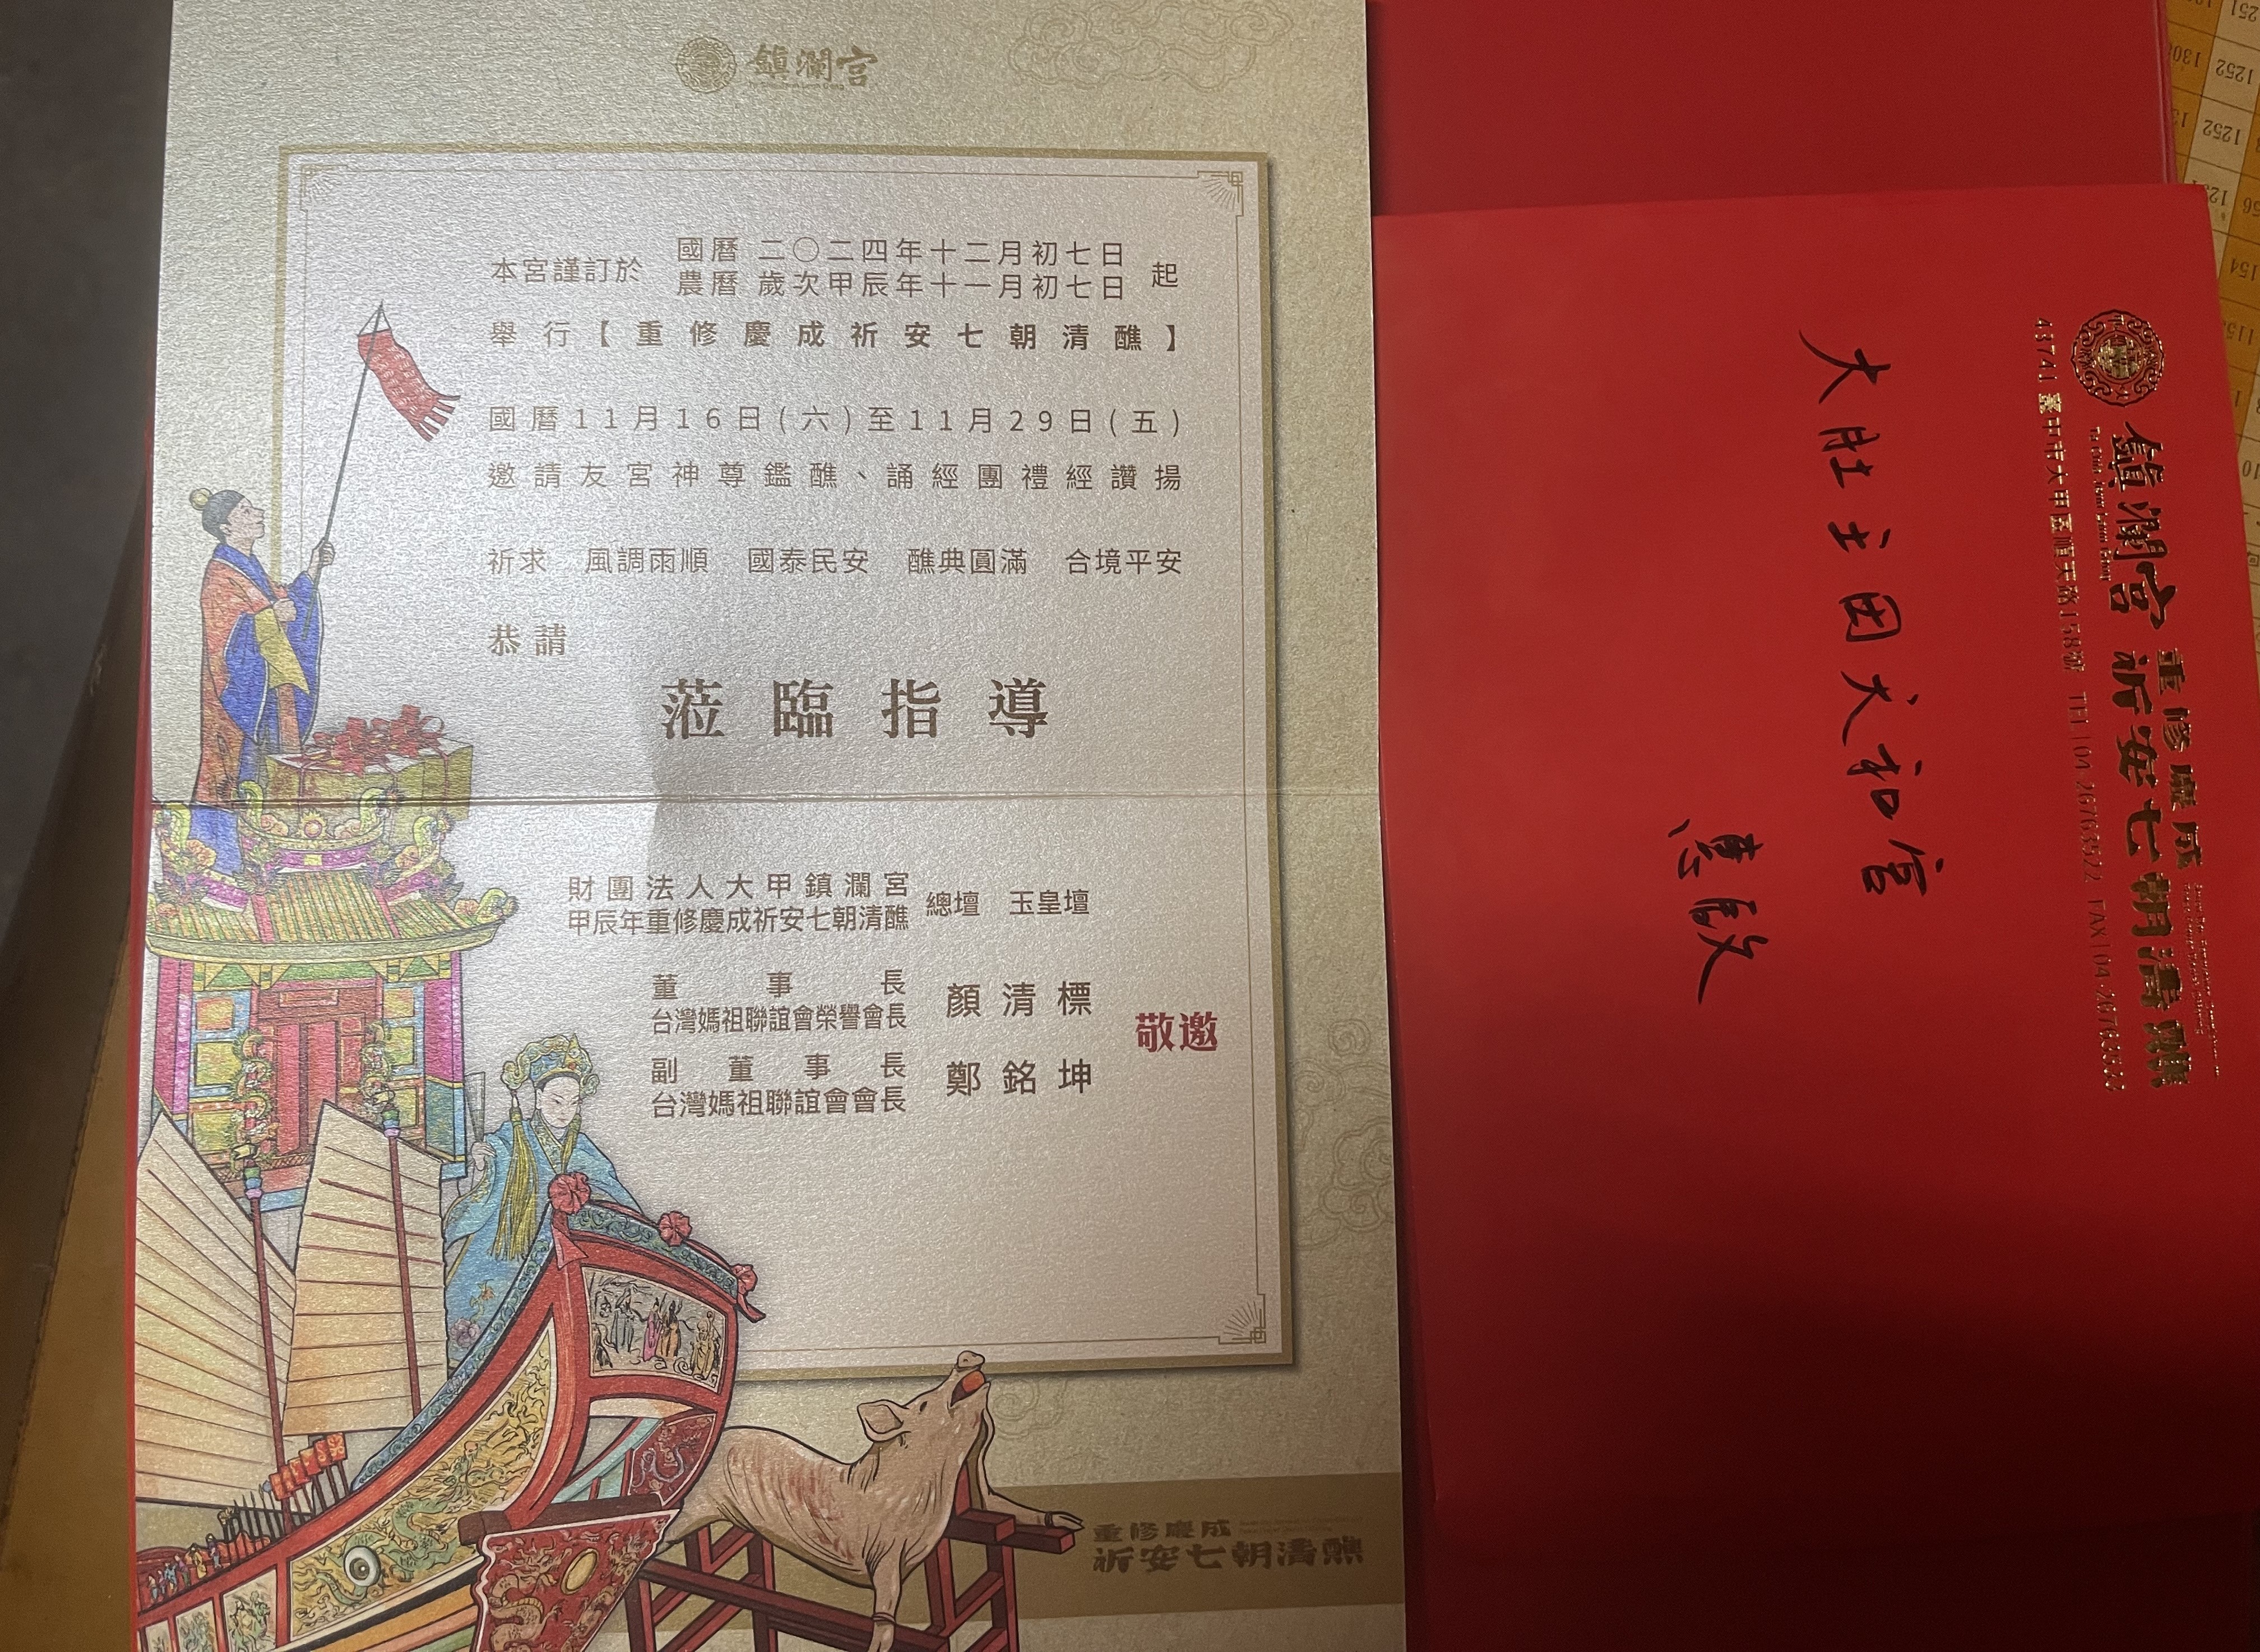 鎮瀾宮
本宮謹訂於 國曆 二〇二四年十二月初七日 起
農曆 歲次甲辰年十一月初七日
舉行【重修慶成祈安七朝清醮】
國曆11月16日(六)至11月29日(五)
邀請友宮神尊鑑醮、誦經團禮經讚揚
祈求 風調雨順 國泰民安 醮典圓滿 合境平安
恭請
蒞臨指導
財團法人大甲鎮瀾宮
甲辰年重修慶成祈安七朝清醮 總壇 玉皇壇
董事長
台灣媽祖聯誼會榮譽會長 顏清標
副董事長
台灣媽祖聯誼會會長 鄭銘坤
敬邀
重修慶成
祈安七朝清醮
鎮瀾宮 重修慶成 祈安七朝清醮
43741 臺中市大甲區順天路158號 TEL|04-26763522
大肚 田 和宮
惠啟
1252
1252